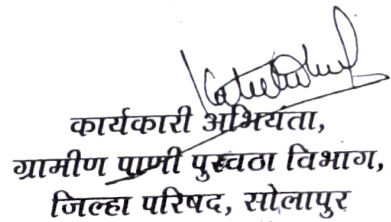 कार्यकारी अभियंता,
ग्रामीण पाणी पुरवठा विभाग,
जिल्हा परिषद, सोलापुर